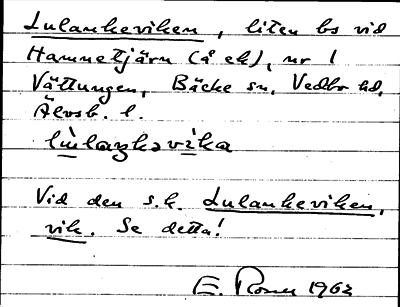 Lulankeviken, liten bs vid
Hamnetjärn (å ek), nr l
Vättungen, Bäcke sn, Vedbo hd,
Älvsb. l.
Vid den s.k. Lulankeviken,
vik. Se detta!
E. 1962